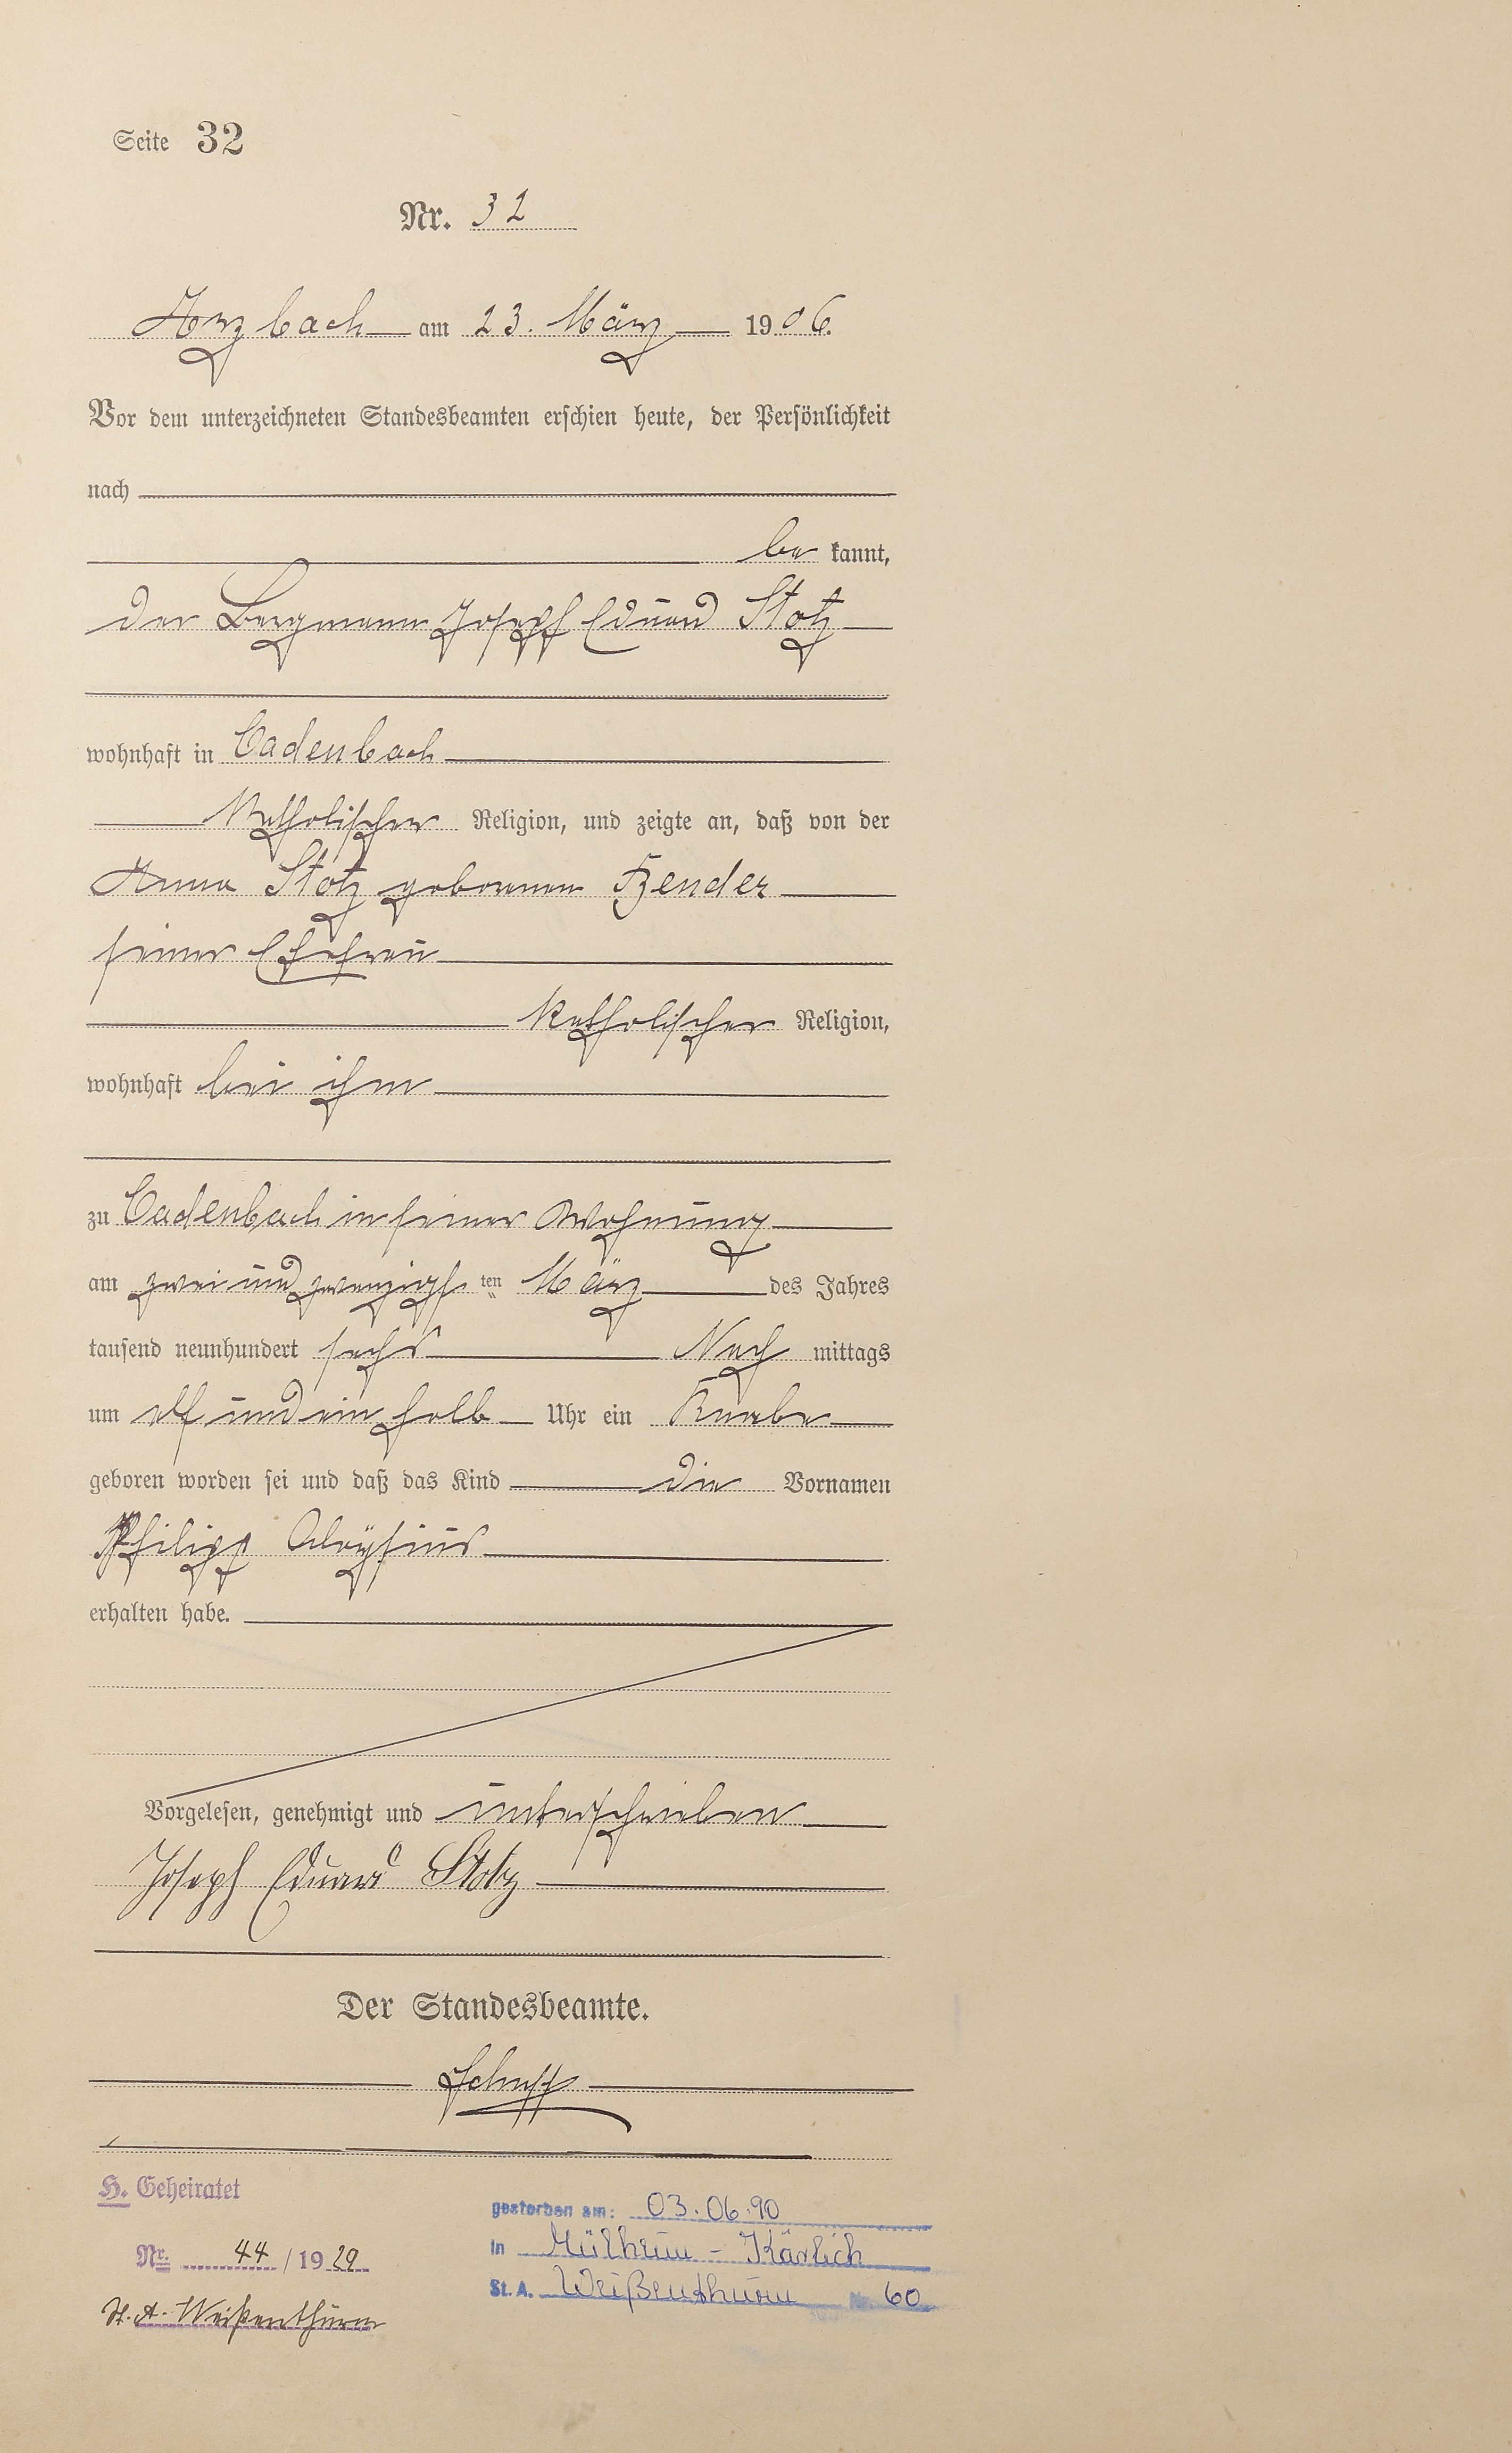 Seite 32
Nr. 32
Arzbach am 23. März 1906.
Vor dem unterzeichneten Standesbeamten erschien heute, der Persönlichkeit
nach
be kannt,
der Bergmann Joseph Eduard Stotz
wohnhaft in Cadenbach
katholischer Religion, und zeigte an, daß von der
Anna Stotz geborenen Hender
seiner Ehefrau
katholischer Religion,
wohnhaft bei ihm
zu Cadenbach in seiner Wohnung
am zwei und zwanzigsten März des Jahres
tausend neunhundert sechs Nach mittags
um elf und ein halb Uhr ein Knabe
geboren worden sei und daß das Kind die Vornamen
Philipp Aloysius
erhalten habe.
Vorgelesen, genehmigt und unterschrieben
Joseph Eduard Stotz
Der Standesbeamte.
H. Geheiratet
Nr. 44 / 1929
St. A. Weißenthurm
gestorben am: 03.06.90
in Mülheim - Kärlich
St. A. Weißenthurm Nr. 60